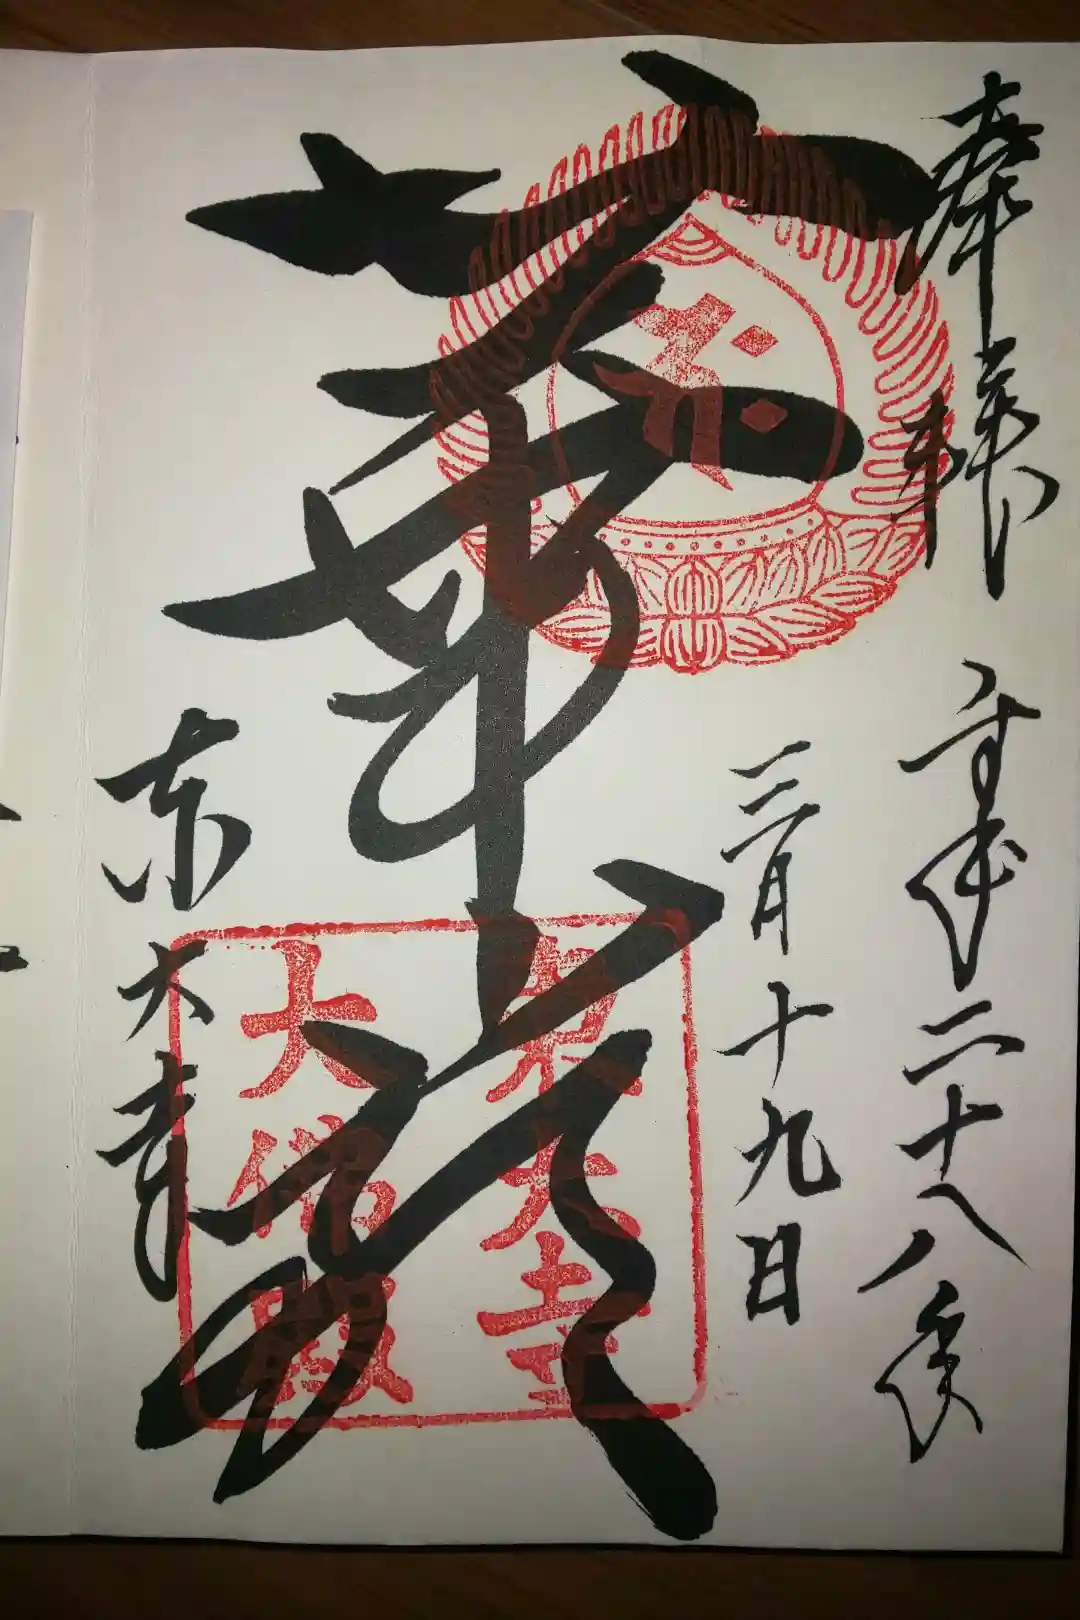 奉拝 平成二十八年
三月十九日
華厳
東大寺
東大寺
大佛殿